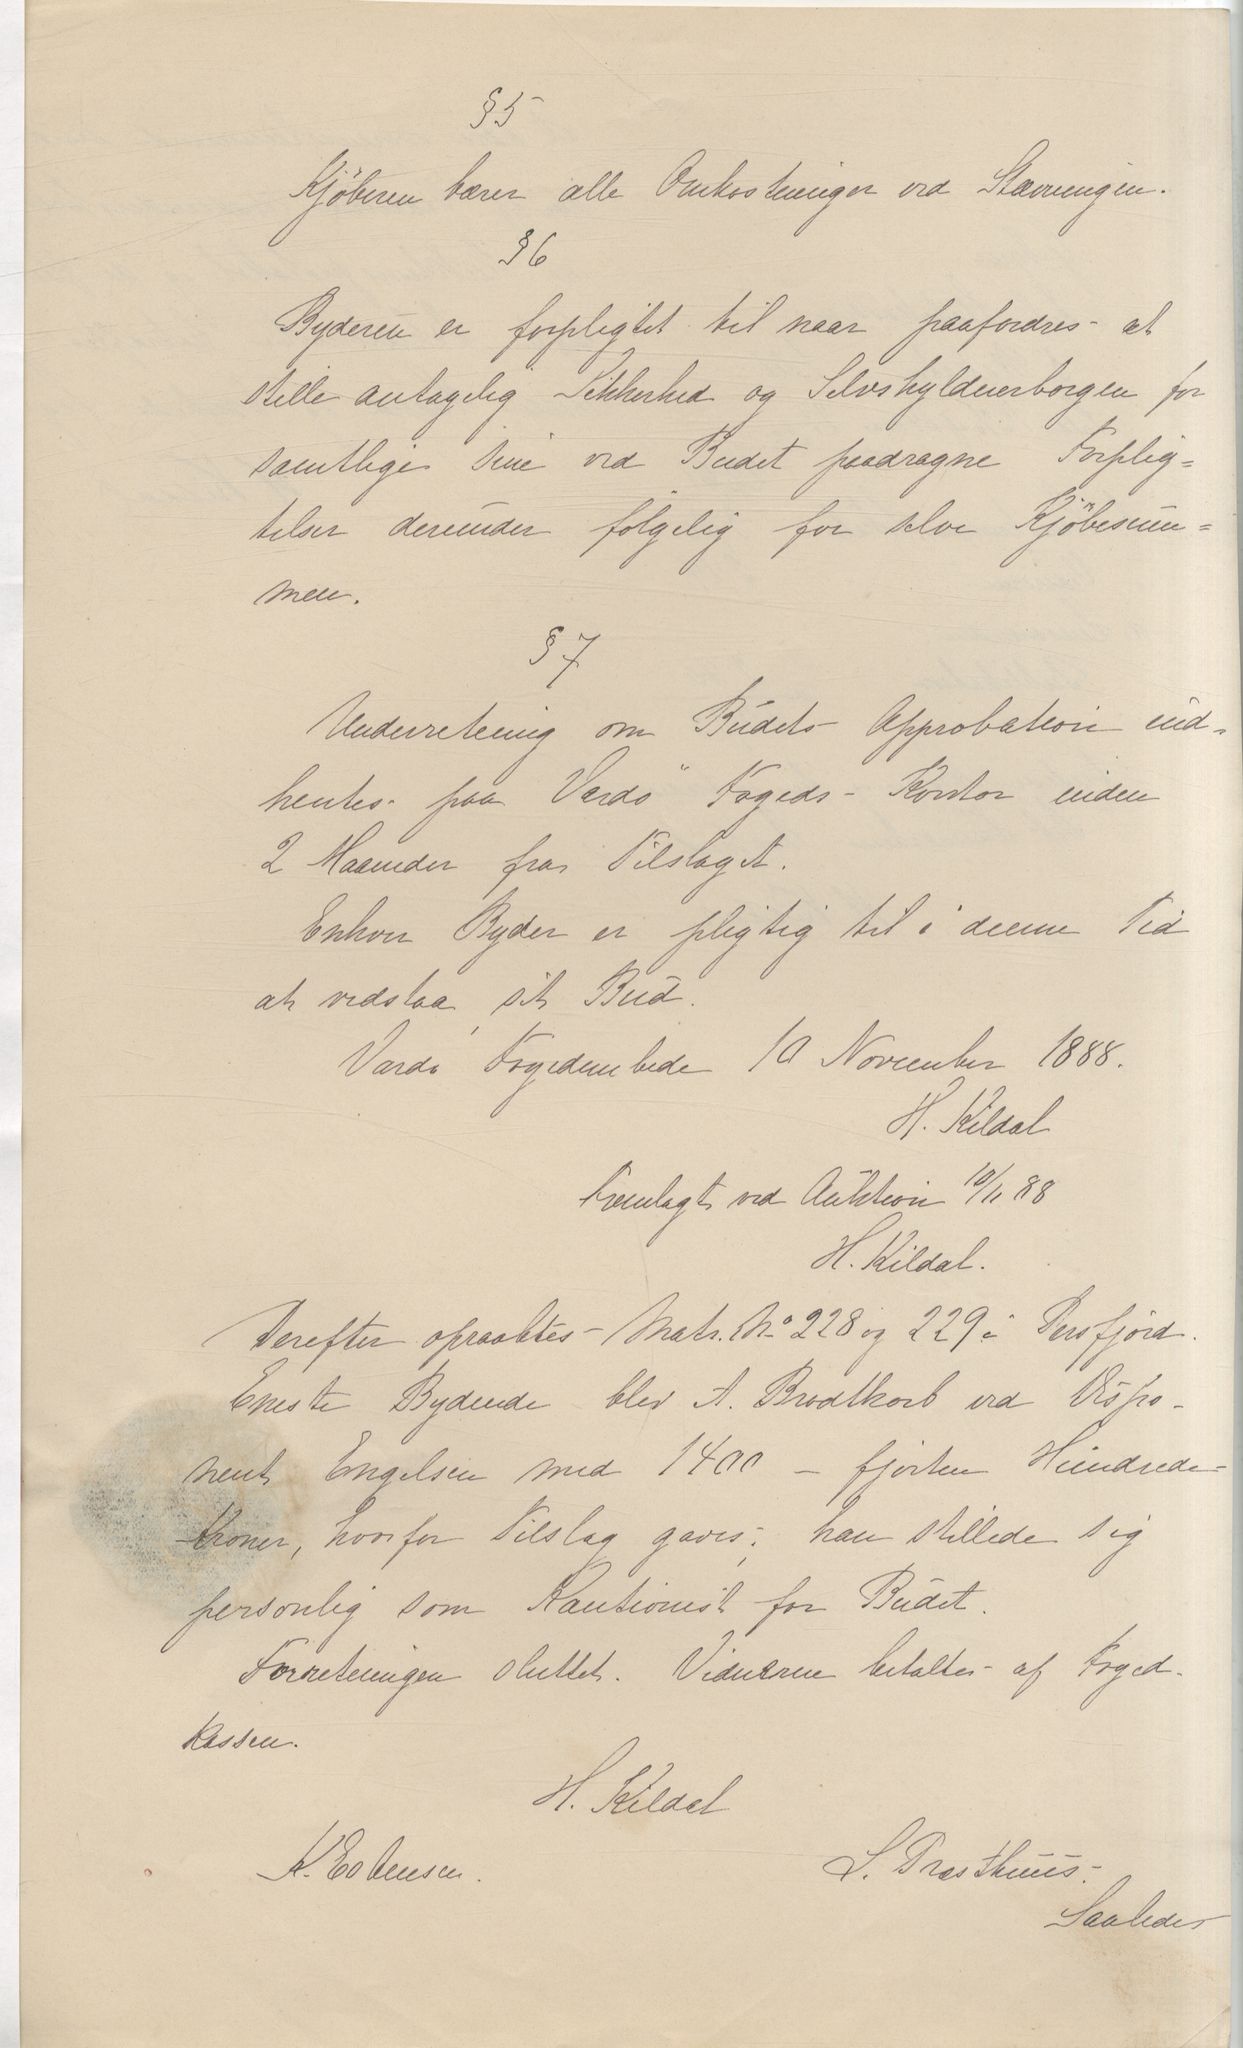 § 5
Kjøberen bærer alle Omkostninger ved Stævningen.
§ 6
Byderen er forpligtet til naar paafordres at
stille antagelig Sikkerhed og Selvskyldnerborgen for
samtlige sine ved Budet paadragne Forplig=
telser derunder følgelig for selve Kjøbesum=
men.
§ 7
Underretning om Budets Approbation ind-
hentes paa Vardø Fogeds-Kontor inden
2 Maaneder fra Tilslaget.
Enhver Byder er pligtig til i denne Tid
at vedstaa sit Bud.
Vardø Fogedembede 10 November 1888.
H. Kildal
Fremlagt ved Auktion 10/11 88
H. Kildal.
Derefter opraabtes Matr. No 228 og 229 i Persfjord.
Eneste Bydende blev A. Brodtkorb ved Dispo-
nent Engelsen med 1400 – fjorten Hundrede
kroner, hvorfor Tilslag gaves; han stillede sig
personlig som Kautionist for Budet.
Forretningen sluttet. Vidnerne betaltes af Foged-
kassen.
H. Kildal
K. Esbensen. L. Præsthuus.
Saaledes